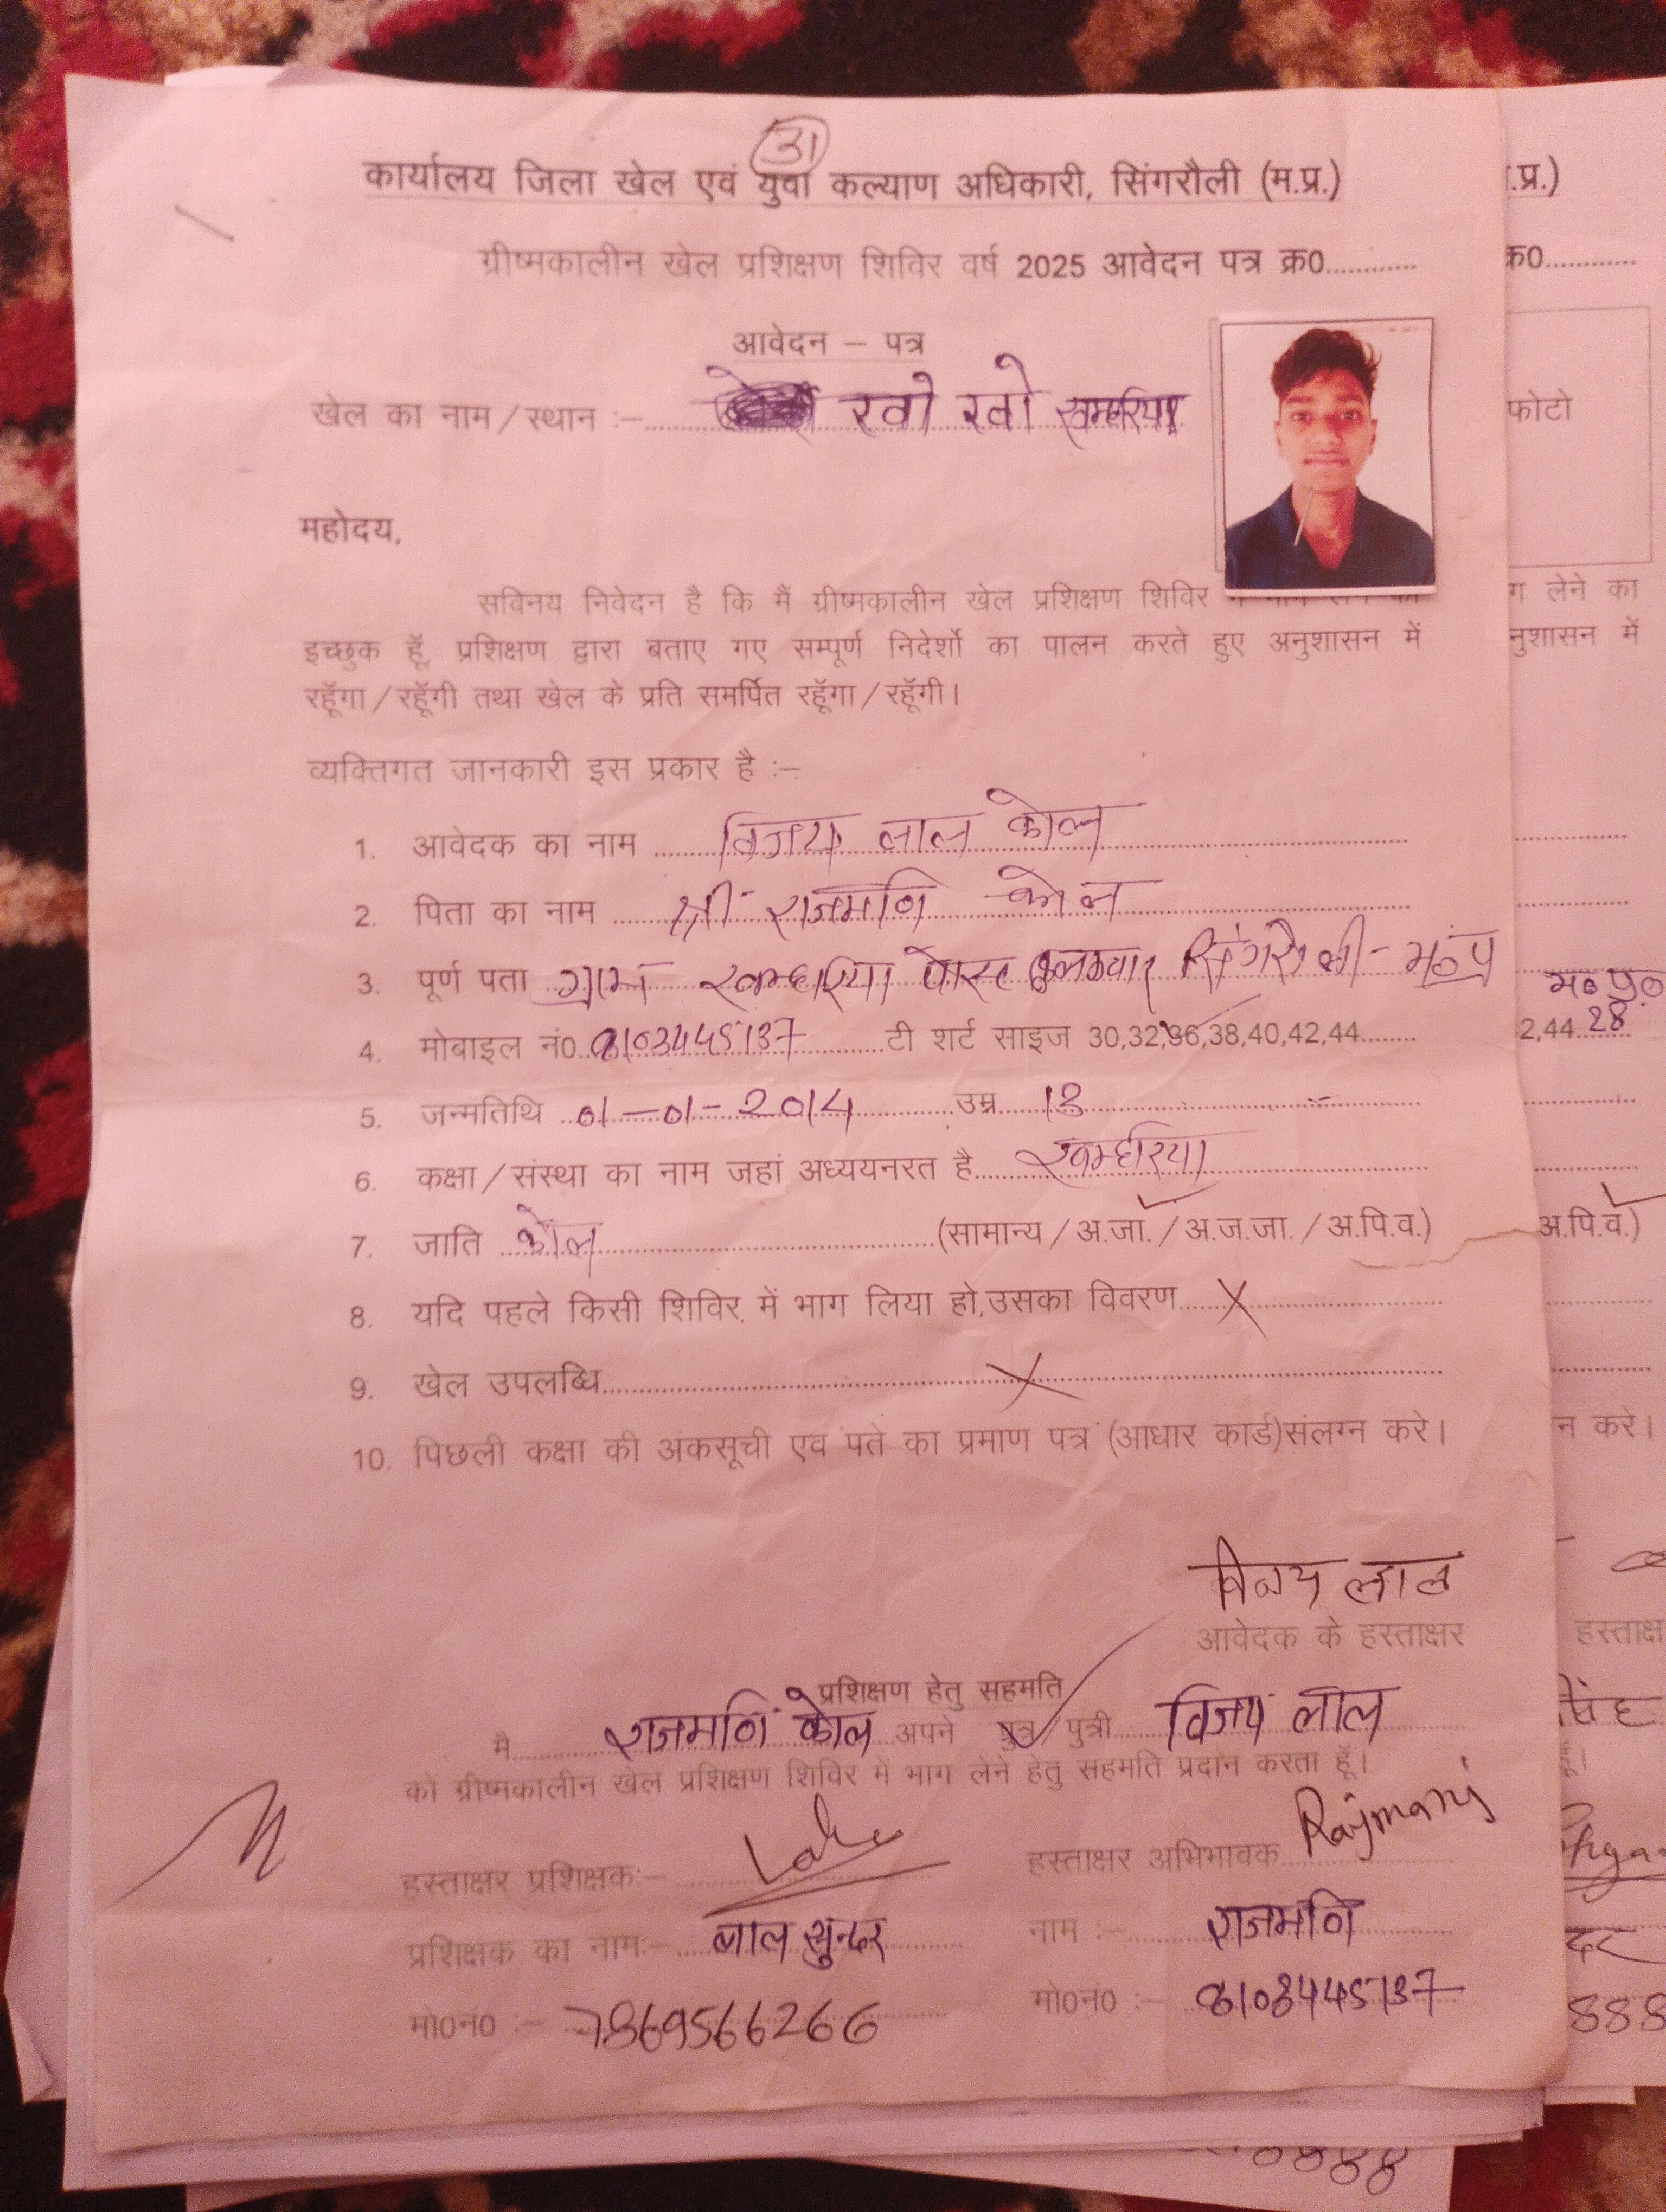 31
कार्यालय जिला खेल एवं युवा कल्याण अधिकारी, सिंगरौली (म.प्र.)
ग्रीष्मकालीन खेल प्रशिक्षण शिविर वर्ष 2025 आवेदन पत्र क्र0............
आवेदन – पत्र
खेल का नाम/स्थान :–........ खो खो खम्हरिया
महोदय,
सविनय निवेदन है कि मैं ग्रीष्मकालीन खेल प्रशिक्षण शिविर
इच्छुक हूॅ, प्रशिक्षण द्वारा बताए गए सम्पूर्ण निदेर्शो का पालन करते हुए अनुशासन में
रहूॅगा/रहूॅगी तथा खेल के प्रति समर्पित रहूॅगा/रहूॅगी।
व्यक्तिगत जानकारी इस प्रकार है :–
1. आवेदक का नाम विजय लाल कोल
2. पिता का नाम श्री राजमणि कोल
3. पूर्ण पता ग्राम खम्हरिया पोस्ट सिंगरौली - म०प्र
4. मोबाइल नं0 टी शर्ट साइज 30,32,36,38,40,42,44........
5. जन्मतिथि 01-01-2014 उम्र 13
6. कक्षा/संस्था का नाम जहां अध्ययनरत है खम्हरिया
7. जाति कोल (सामान्य/अ.जा./अ.ज.जा./अ.पि.व.)
8. यदि पहले किसी शिविर में भाग लिया हो,उसका विवरण X
9. खेल उपलब्धि X
10. पिछली कक्षा की अंकसूची एवं पते का प्रमाण पत्र (आधार कार्ड)संलग्न करे।
विजय लाल
आवेदक के हस्ताक्षर
प्रशिक्षण हेतु सहमति
मै राजमणि कोल अपने पुत्र/पुत्री विजय लाल
को ग्रीष्मकालीन खेल प्रशिक्षण शिविर में भाग लेने हेतु सहमति प्रदान करता हूॅ।
हस्ताक्षर प्रशिक्षक:– हस्ताक्षर अभिभावक Rajmani
प्रशिक्षक का नाम:– लाल सुन्दर नाम :– राजमणि
मो0नं0 :– 7869566266 मो0नं0 :–
.प्र.)
क्र0............
फोटो
लेने का
नुशासन में
म०प्र०
2,44 28
अ.पि.व.)
न करे।
हस्ताक्ष
सिंह
888